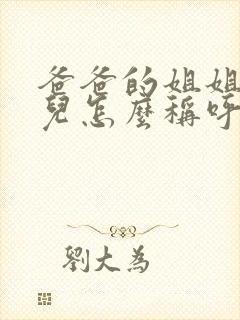 爸爸的姐姐
兒怎麼稱呼
劉大為